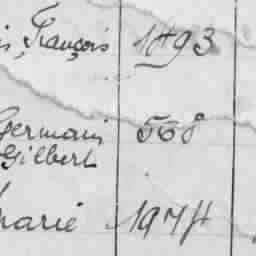 is, François 1893
Germain 568
Gilbert
Marie 1974